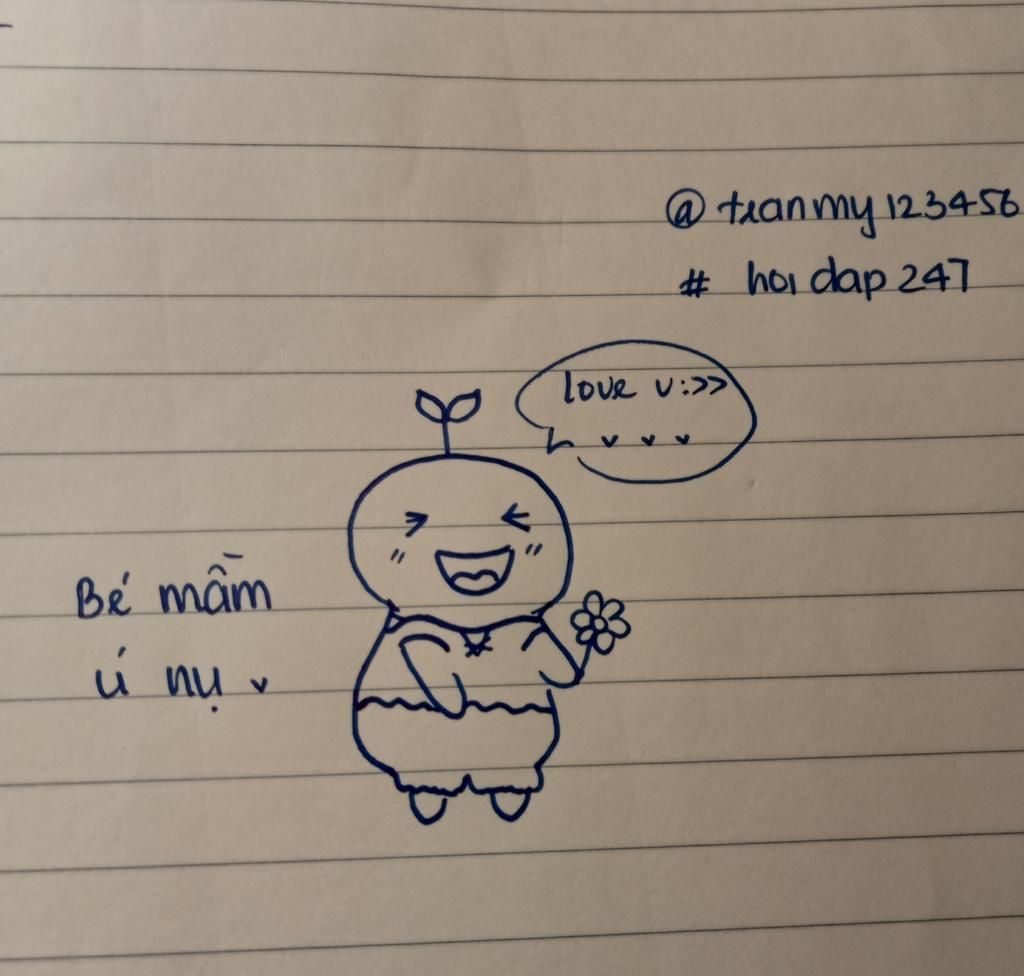 @tranmy123456
# hoi dap 247
love v:>>
Bé mầm
ú nụ